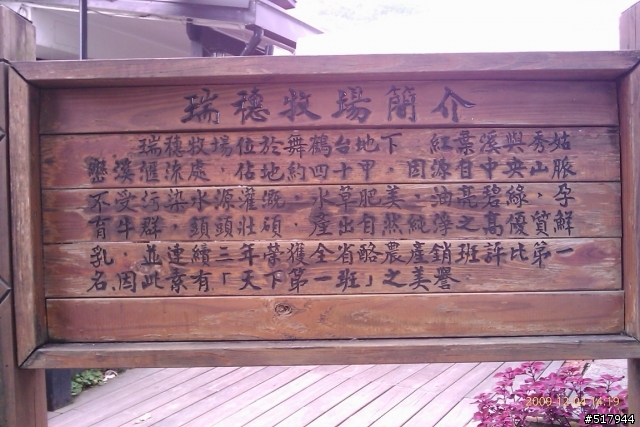 瑞穗牧場簡介
瑞穗牧場位於舞鶴台地下 紅葉溪與秀姑
巒溪滙流處,佔地約四十甲,因源自中央山脈
不受污染水源灌溉,水草肥美,油亮碧綠,孕
育牛群,頭頭壯碩,產出自然純淨之高優質鮮
乳,並連續三年榮獲全省酪農產銷班評比第一
名,因此素有「天下第一班」之美譽
2009-12-04 14:19
#517944